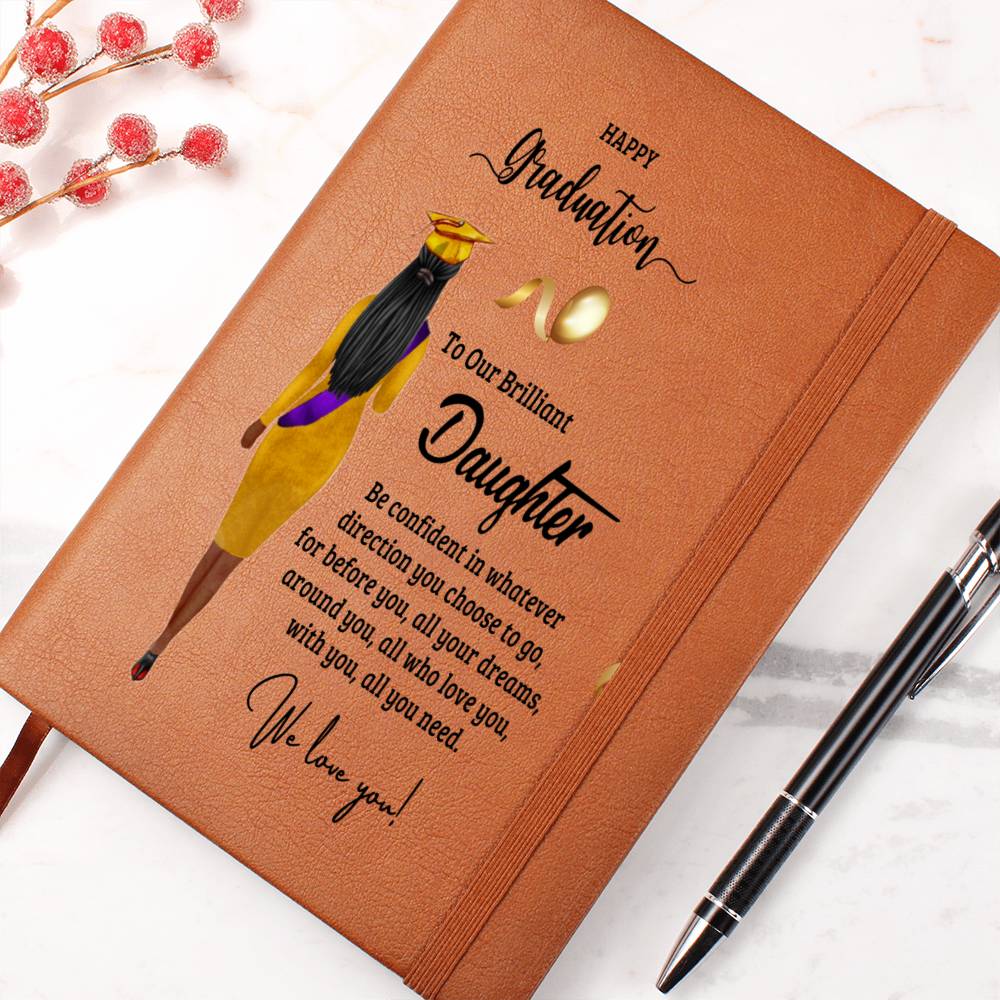 HAPPY
Graduation
To Our Brilliant
Daughter
Be confident in whatever
direction you choose to go,
for before you, all your dreams,
around you, all who love you,
with you, all you need.
We love you!